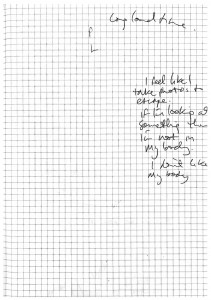 P
L
I feel like I
take photos to
escape.
if I'm looking at
something then
I'm not in
my body.
I don't like
my body